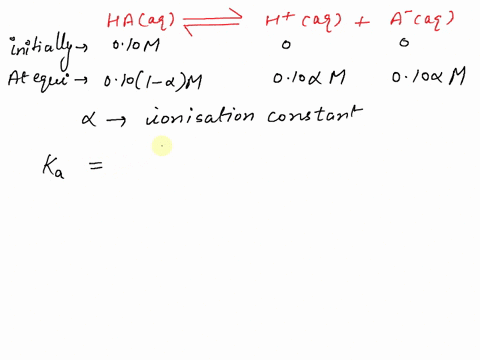 HA(aq) ⇌ H⁺(aq) + A⁻(aq)
initially → 0.10M 0 0
At equi → 0.10(1-α)M 0.10α M 0.10α M
α → iionisation constant
Kₐ =